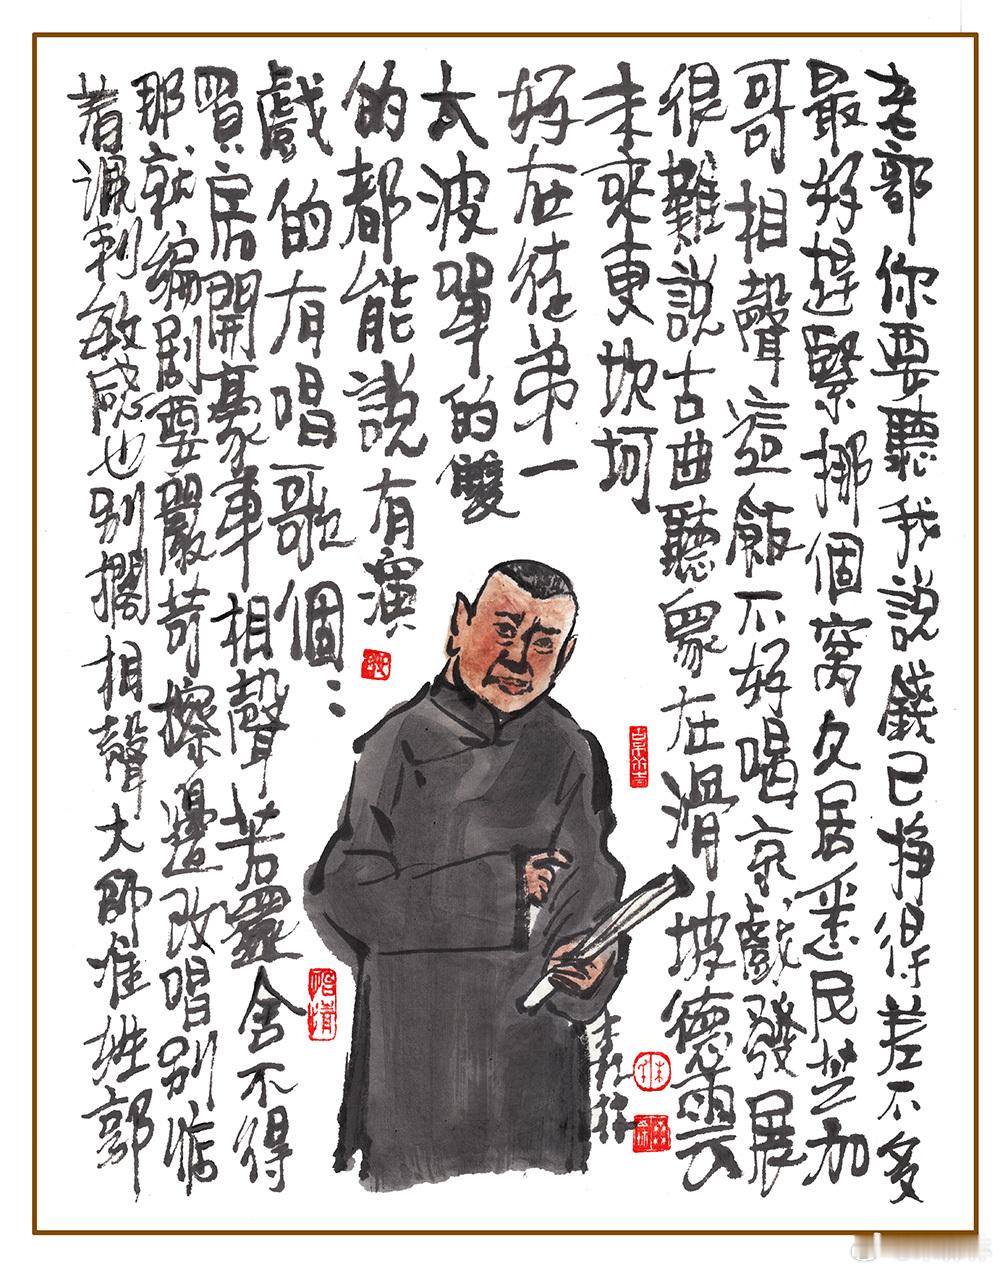 老郭你要聽我說錢已掙得差不多
最好趕緊挪個窩久居悉尼芝加
哥相聲這飯不好喝京戲發展
很難說古曲聽眾在滑坡德雲
未來更坎坷
好在徒弟一
大波單的雙
的都能說有演
戲的有唱歌個〻
買房開豪車相聲若還舍不得
那就編剧要嚴苛擦邊改唱别惦
着諷刺敏感也别擱相聲大師准姓郭